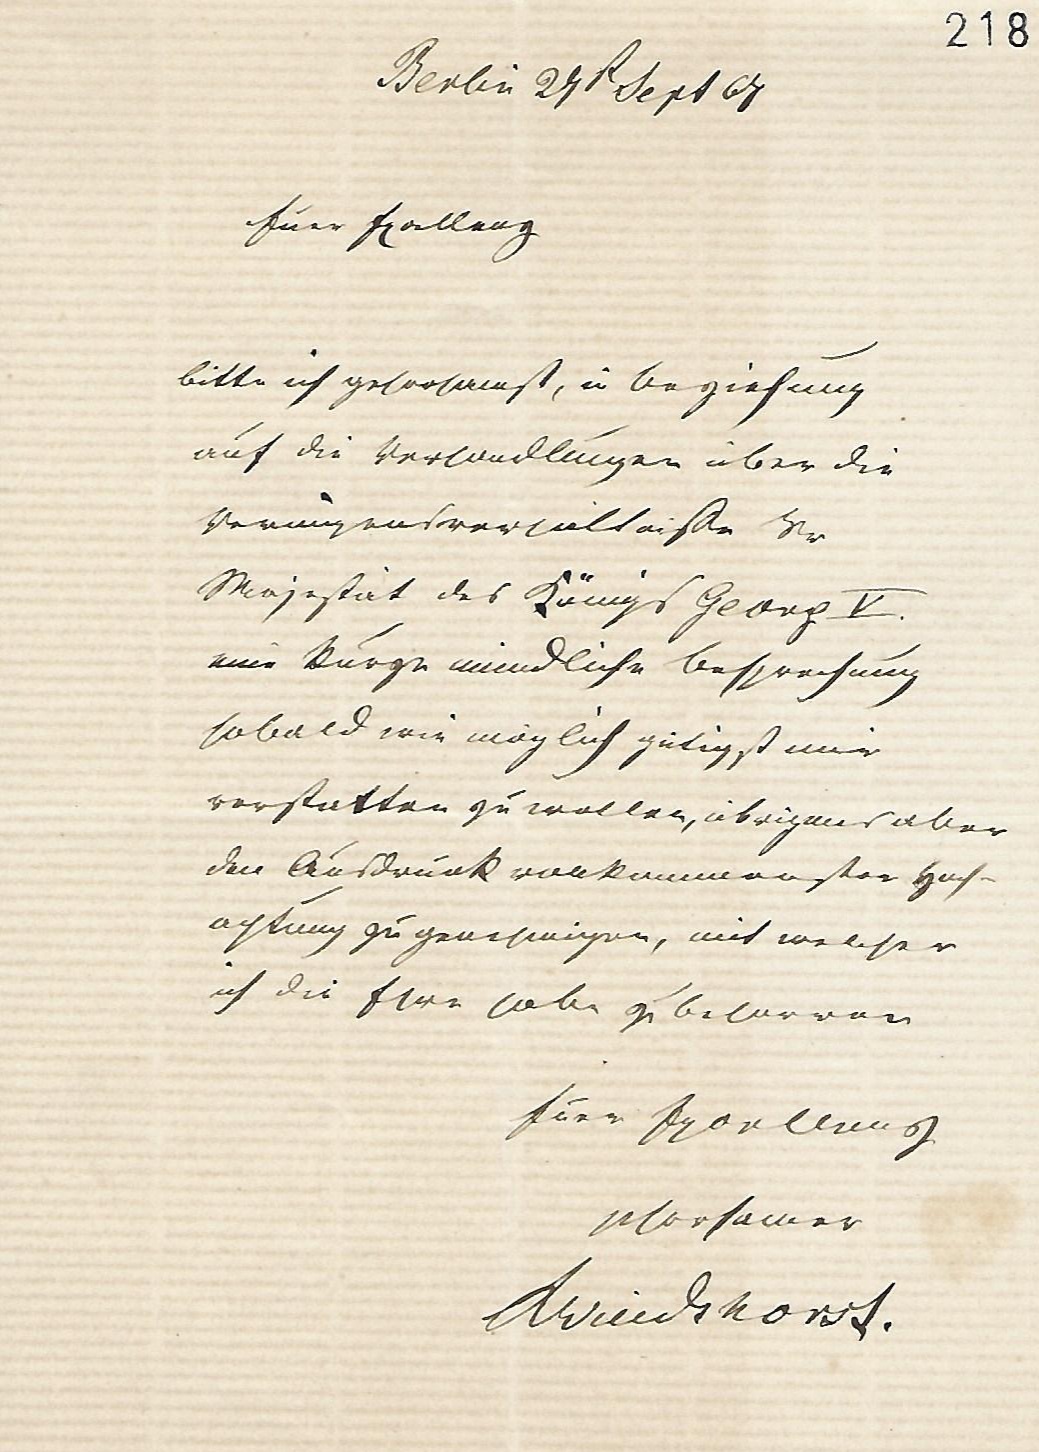 218
Berlin 27t Sept 67
Euer Excellenz
bitte ich gehorsamst, in beziehung
auf die Verhandlungen über die
Vermögensverhältnisse Sr
Majestät des Königs Georg V.
eine kurze mündliche besprechung
sobald wie möglich gütigst mir
verstatten zu wollen, übrigens aber
den Ausdruck vollkommenster Hoch-
achtung zu genehmigen, mit welcher
ich die Ehre habe zu beharren
Euer Excellenz
gehorsamer
LWindthorst.